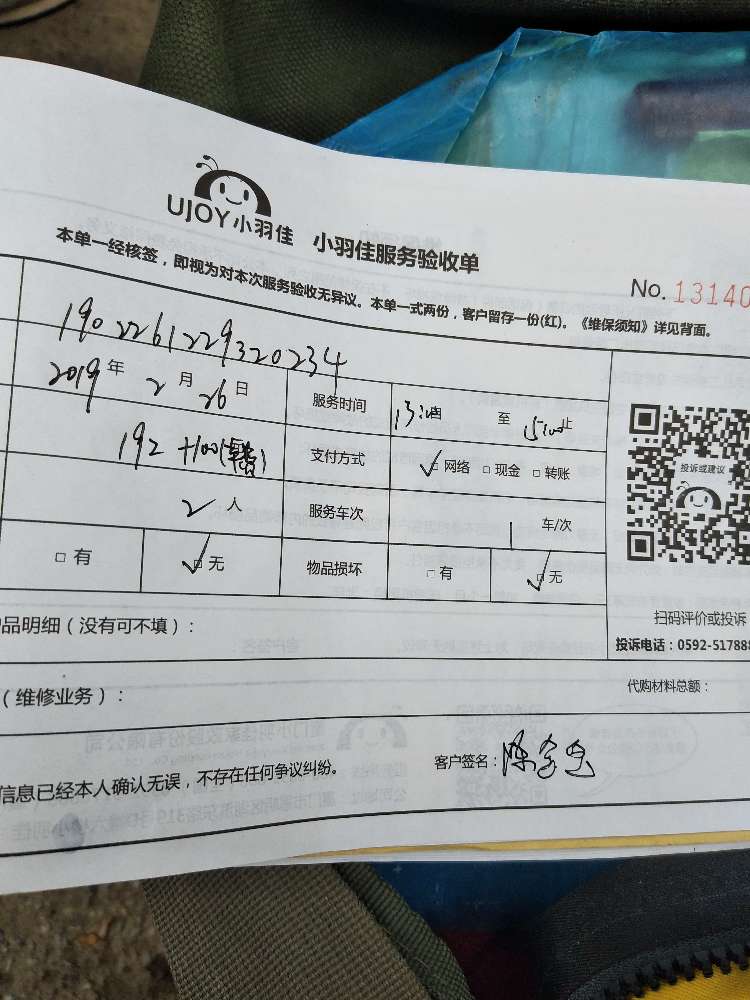 UJOY小羽佳 小羽佳服务验收单
No. 13140
本单一经核签，即视为对本次服务验收无异议。本单一式两份，客户留存一份(红)。《维保须知》详见背面。
190226122932 0234
2019年2月26日 服务时间 13:00 至 15:00止
192 +100( 支付方式 ☑网络 □现金 □转账
投诉或建议
2人 服务车次 1车/次
□有 ☑无 物品损坏 □有 ☑无
扫码评价或投诉
品明细（没有可不填）：
投诉电话：0592-517888
（维修业务）： 代购材料总额：
信息已经本人确认无误，不存在任何争议纠纷。 客户签名：陈